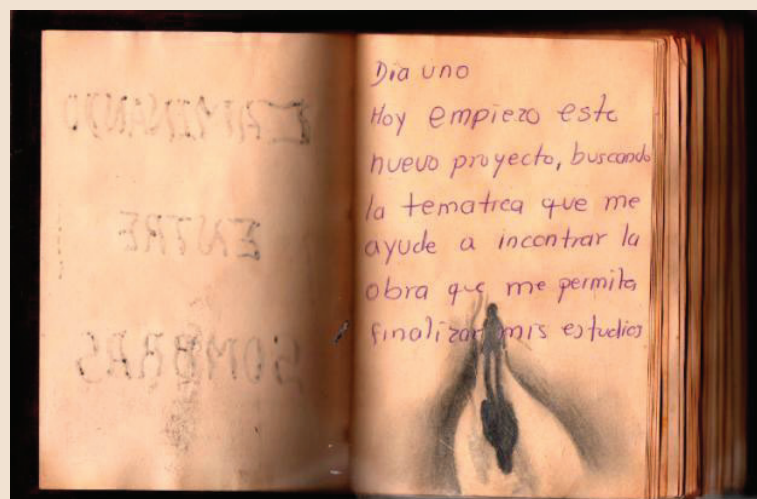 CAMINANDO
ENTRE
SOMBRAS
Dia uno
Hoy empiezo este
nuevo proyecto, buscando
la tematica que me
ayude a incontrar la
obra que me permita
finalizar mis estudios